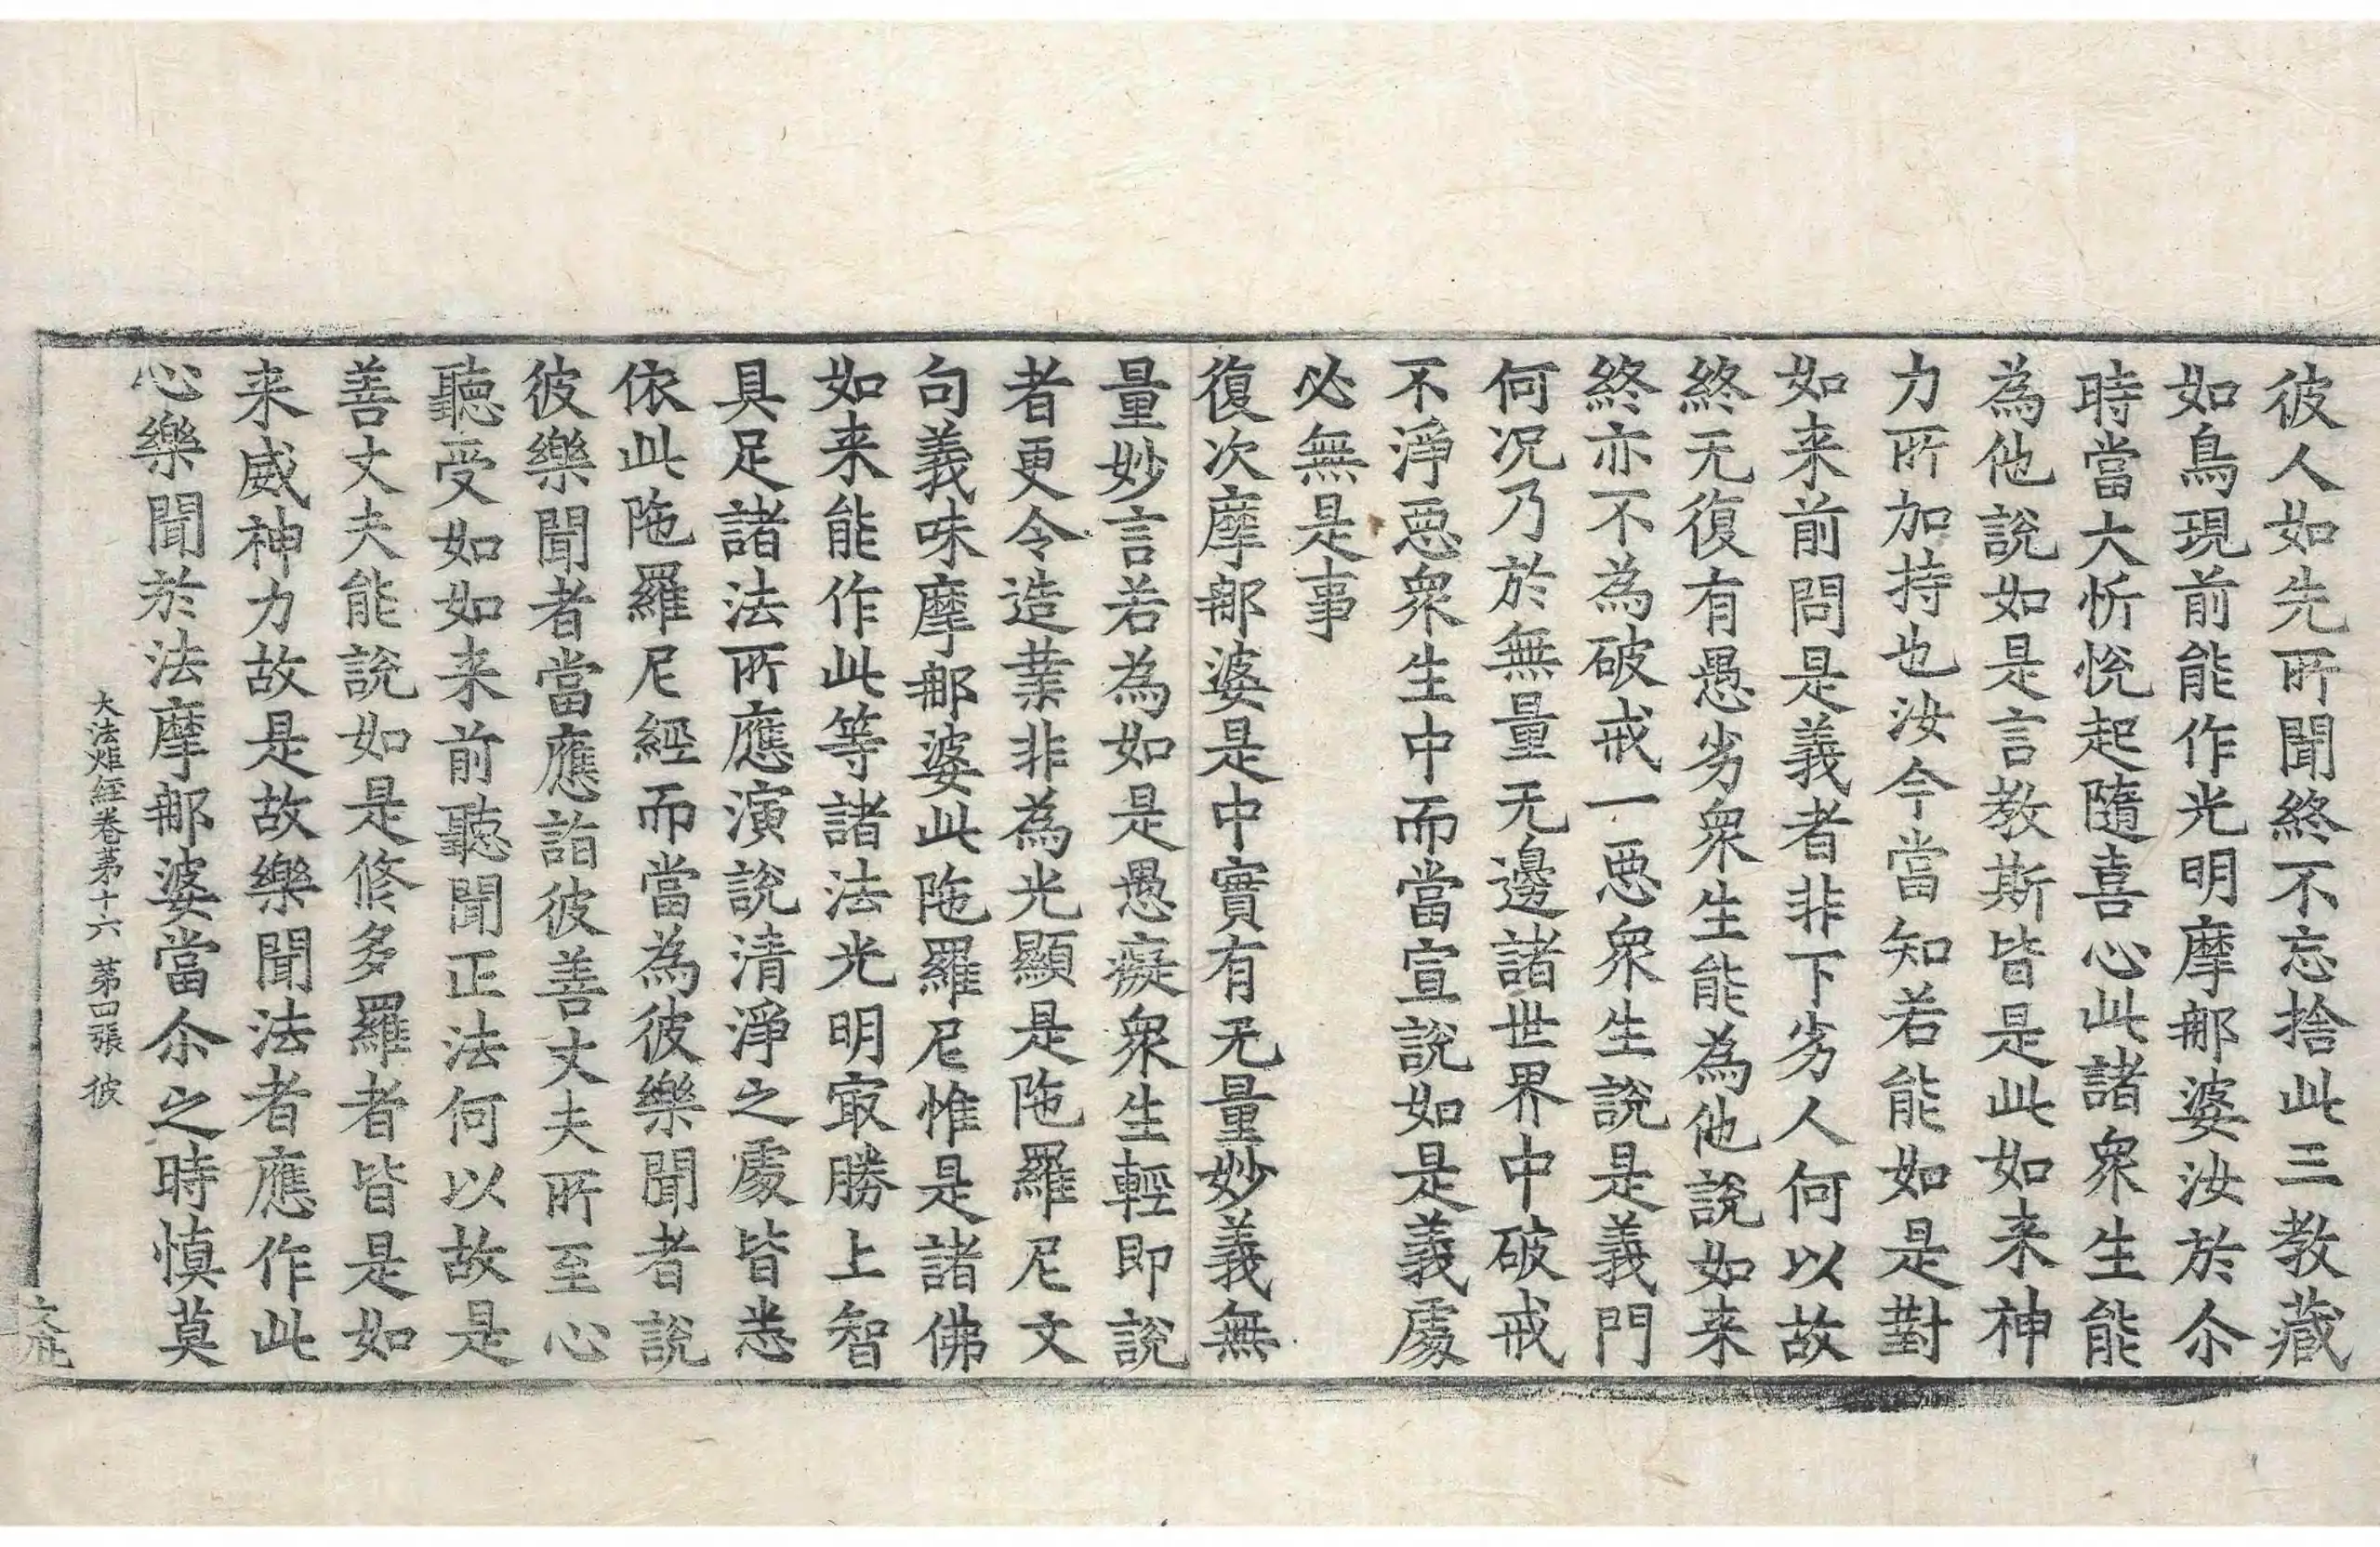 彼人如先所聞終不忘捨此三教藏
如鳥現前能作光明摩郍婆汝於尒
時當大忻悅起隨喜心此諸衆生能
為他說如是言教斯皆是此如来神
力所加持也汝今當知若能如是對
如来前問是義者非下劣人何以故
終无復有愚劣衆生能為他說如来
終亦不為破戒一惡衆生說是義門
何况乃於無量无邊諸世界中破戒
不淨惡衆生中而當宣說如是義處
必無是事
復次摩郍婆是中實有无量妙義無
量妙言若為如是愚癡衆生輕即說
者更令造業非為光顯是陁羅尼文
句義味摩郍婆此陁羅尼惟是諸佛
如来能作此等諸法光明㝡勝上智
具足諸法所應演說清淨之處皆悉
依此陁羅尼經而當為彼樂聞者說
彼樂聞者當應詣彼善丈夫所至心
聽受如如来前聽聞正法何以故是
善丈夫能說如是修多羅者皆是如
来威神力故是故樂聞法者應作此
心樂聞於法摩郍婆當尒之時慎莫
大法炬經卷第十六 第四張 彼